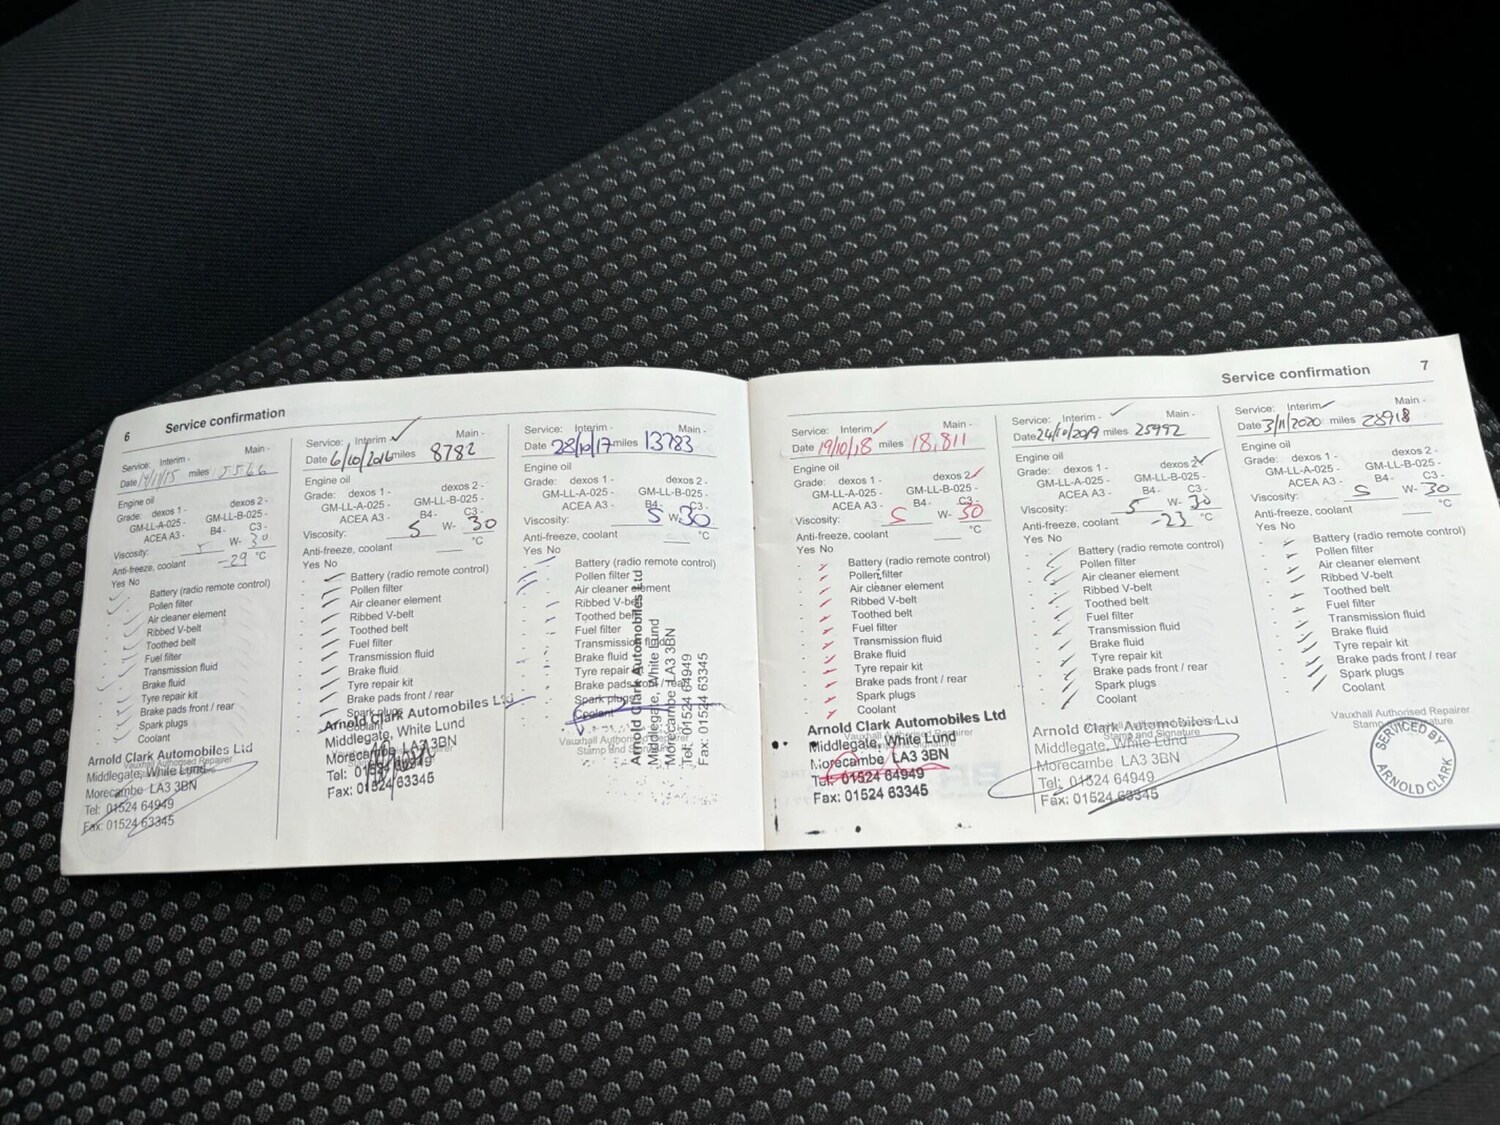 6 Service confirmation
Service: Interim - Main -
Date miles
Engine oil
Grade: dexos 1 - dexos 2 -
GM-LL-A-025 - GM-LL-B-025 -
ACEA A3 - B4 - C3 -
Viscosity: 5 W- 30
Anti-freeze, coolant -29 °C
Yes No
Battery (radio remote control)
Pollen filter
Air cleaner element
Ribbed V-belt
Toothed belt
Fuel filter
Transmission fluid
Brake fluid
Tyre repair kit
Brake pads front / rear
Spark plugs
Coolant
Arnold Clark Automobiles Ltd
Middlegate, White Lund
Vauxhall Authorised Repairer
Morecambe LA3 3BN
Tel: 01524 64949
Fax: 01524 63345
Service: Interim - Main -
Date 6/10/2016 miles 8782
Engine oil
Grade: dexos 1 - dexos 2 -
GM-LL-A-025 - GM-LL-B-025 -
ACEA A3 - B4 - C3 -
Viscosity: 5 W- 30
Anti-freeze, coolant °C
Yes No
Battery (radio remote control)
Pollen filter
Air cleaner element
Ribbed V-belt
Toothed belt
Fuel filter
Transmission fluid
Brake fluid
Tyre repair kit
Brake pads front / rear
Spark plugs
Arnold Clark Automobiles Ltd
Middlegate, White Lund
Morecambe LA3 3BN
Tel: 01524 64949
Fax: 01524 63345
Service: Interim - Main -
Date 28/10/17 miles 13783
Engine oil
Grade: dexos 1 - dexos 2 -
GM-LL-A-025 - GM-LL-B-025 -
ACEA A3 - B4 - C3 -
Viscosity: 5 W- 30
Anti-freeze, coolant °C
Yes No
Battery (radio remote control)
Pollen filter
Air cleaner element
Ribbed V-belt
Toothed belt
Fuel filter
Transmission fluid
Brake fluid
Tyre repair kit
Brake pads front / rear
Spark plugs
Coolant
Vauxhall Authorised Repairer
Stamp and Signature
Arnold Clark Automobiles Ltd
Middlegate, White Lund
Morecambe LA3 3BN
Tel: 01524 64949
Fax: 01524 63345
Service confirmation 7
Service: Interim - Main -
Date 19/10/18 miles 18,811
Engine oil
Grade: dexos 1 - dexos 2 -
GM-LL-A-025 - GM-LL-B-025 -
ACEA A3 - B4 - C3 -
Viscosity: 5 W- 30
Anti-freeze, coolant °C
Yes No
Battery (radio remote control)
Pollen filter
Air cleaner element
Ribbed V-belt
Toothed belt
Fuel filter
Transmission fluid
Brake fluid
Tyre repair kit
Brake pads front / rear
Spark plugs
Coolant
Arnold Clark Automobiles Ltd
Middlegate, White Lund
Morecambe LA3 3BN
Tel: 01524 64949
Fax: 01524 63345
Service: Interim - Main -
Date 24/10/2019 miles 25992
Engine oil
Grade: dexos 1 - dexos 2 -
GM-LL-A-025 - GM-LL-B-025 -
ACEA A3 - B4 - C3 -
Viscosity: 5 W- 30
Anti-freeze, coolant -23 °C
Yes No
Battery (radio remote control)
Pollen filter
Air cleaner element
Ribbed V-belt
Toothed belt
Fuel filter
Transmission fluid
Brake fluid
Tyre repair kit
Brake pads front / rear
Spark plugs
Coolant
Arnold Clark Automobiles Ltd
Stamp and Signature
Middlegate, White Lund
Morecambe LA3 3BN
Tel: 01524 64949
Fax: 01524 63345
Service: Interim - Main -
Date 3/11/2020 miles 28918
Engine oil
Grade: dexos 1 - dexos 2 -
GM-LL-A-025 - GM-LL-B-025 -
ACEA A3 - B4 - C3 -
Viscosity: 5 W- 30
Anti-freeze, coolant °C
Yes No
Battery (radio remote control)
Pollen filter
Air cleaner element
Ribbed V-belt
Toothed belt
Fuel filter
Transmission fluid
Brake fluid
Tyre repair kit
Brake pads front / rear
Spark plugs
Coolant
Vauxhall Authorised Repairer
Stamp and Signature
SERVICED BY
ARNOLD CLARK